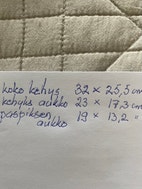 koko kehys 32 x 25,5 cm
kehyks aukko 23 x 17,3 cm
paspiksen 19 x 13,2 =
aukko